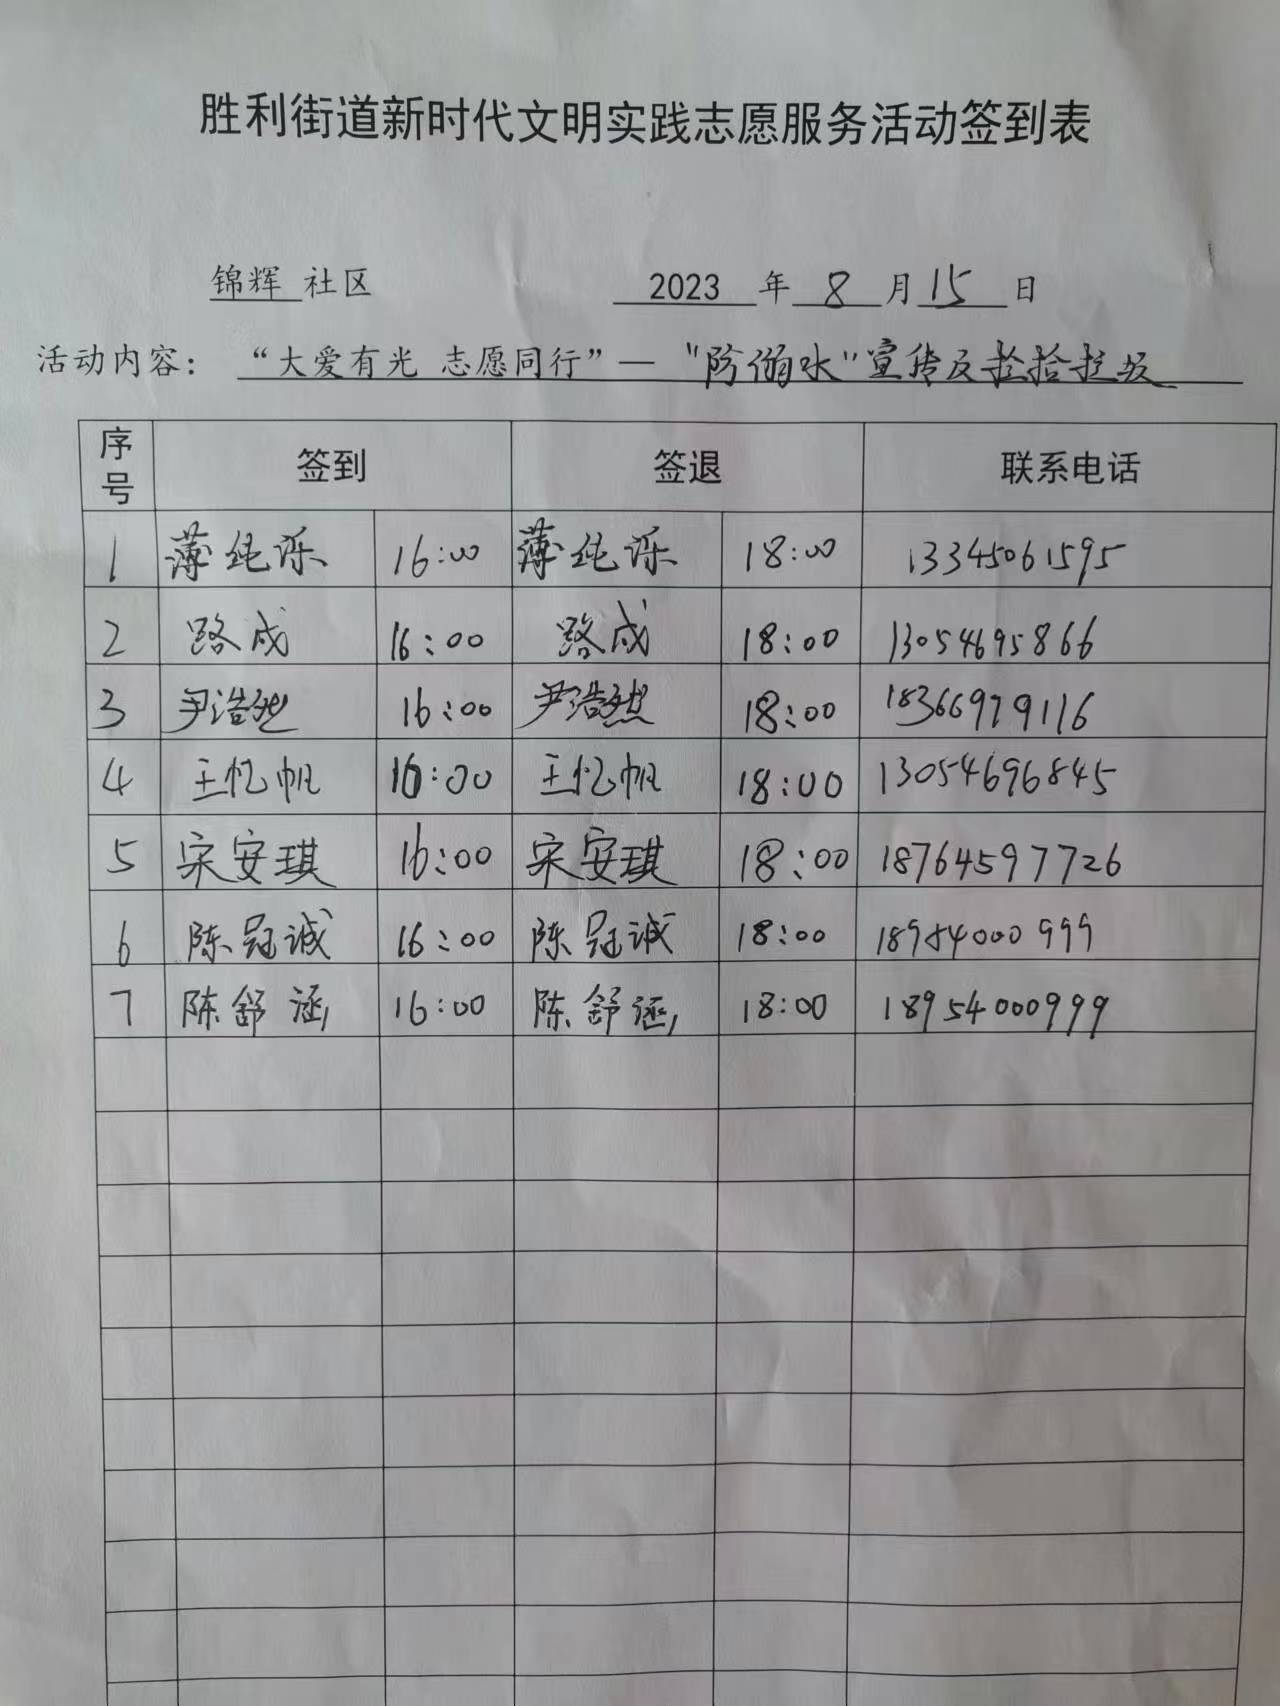 胜利街道新时代文明实践志愿服务活动签到表
锦辉 社区 2023 年 8 月 15 日
活动内容： “大爱有光 志愿同行”— “防溺水”宣传及捡拾垃圾
序号 签到 签退 联系电话
1 薄纯泺 16:00 薄纯泺 18:00 13345061595
2 路成 16:00 路成 18:00 13054695866
3 尹浩然 16:00 尹浩然 18:00 18366979116
4 王忆帆 16:00 王忆帆 18:00 13054696845
5 宋安琪 16:00 宋安琪 18:00 18764597726
6 陈冠诚 16:00 陈冠诚 18:00 18954000999
7 陈舒涵 16:00 陈舒涵 18:00 18954000999